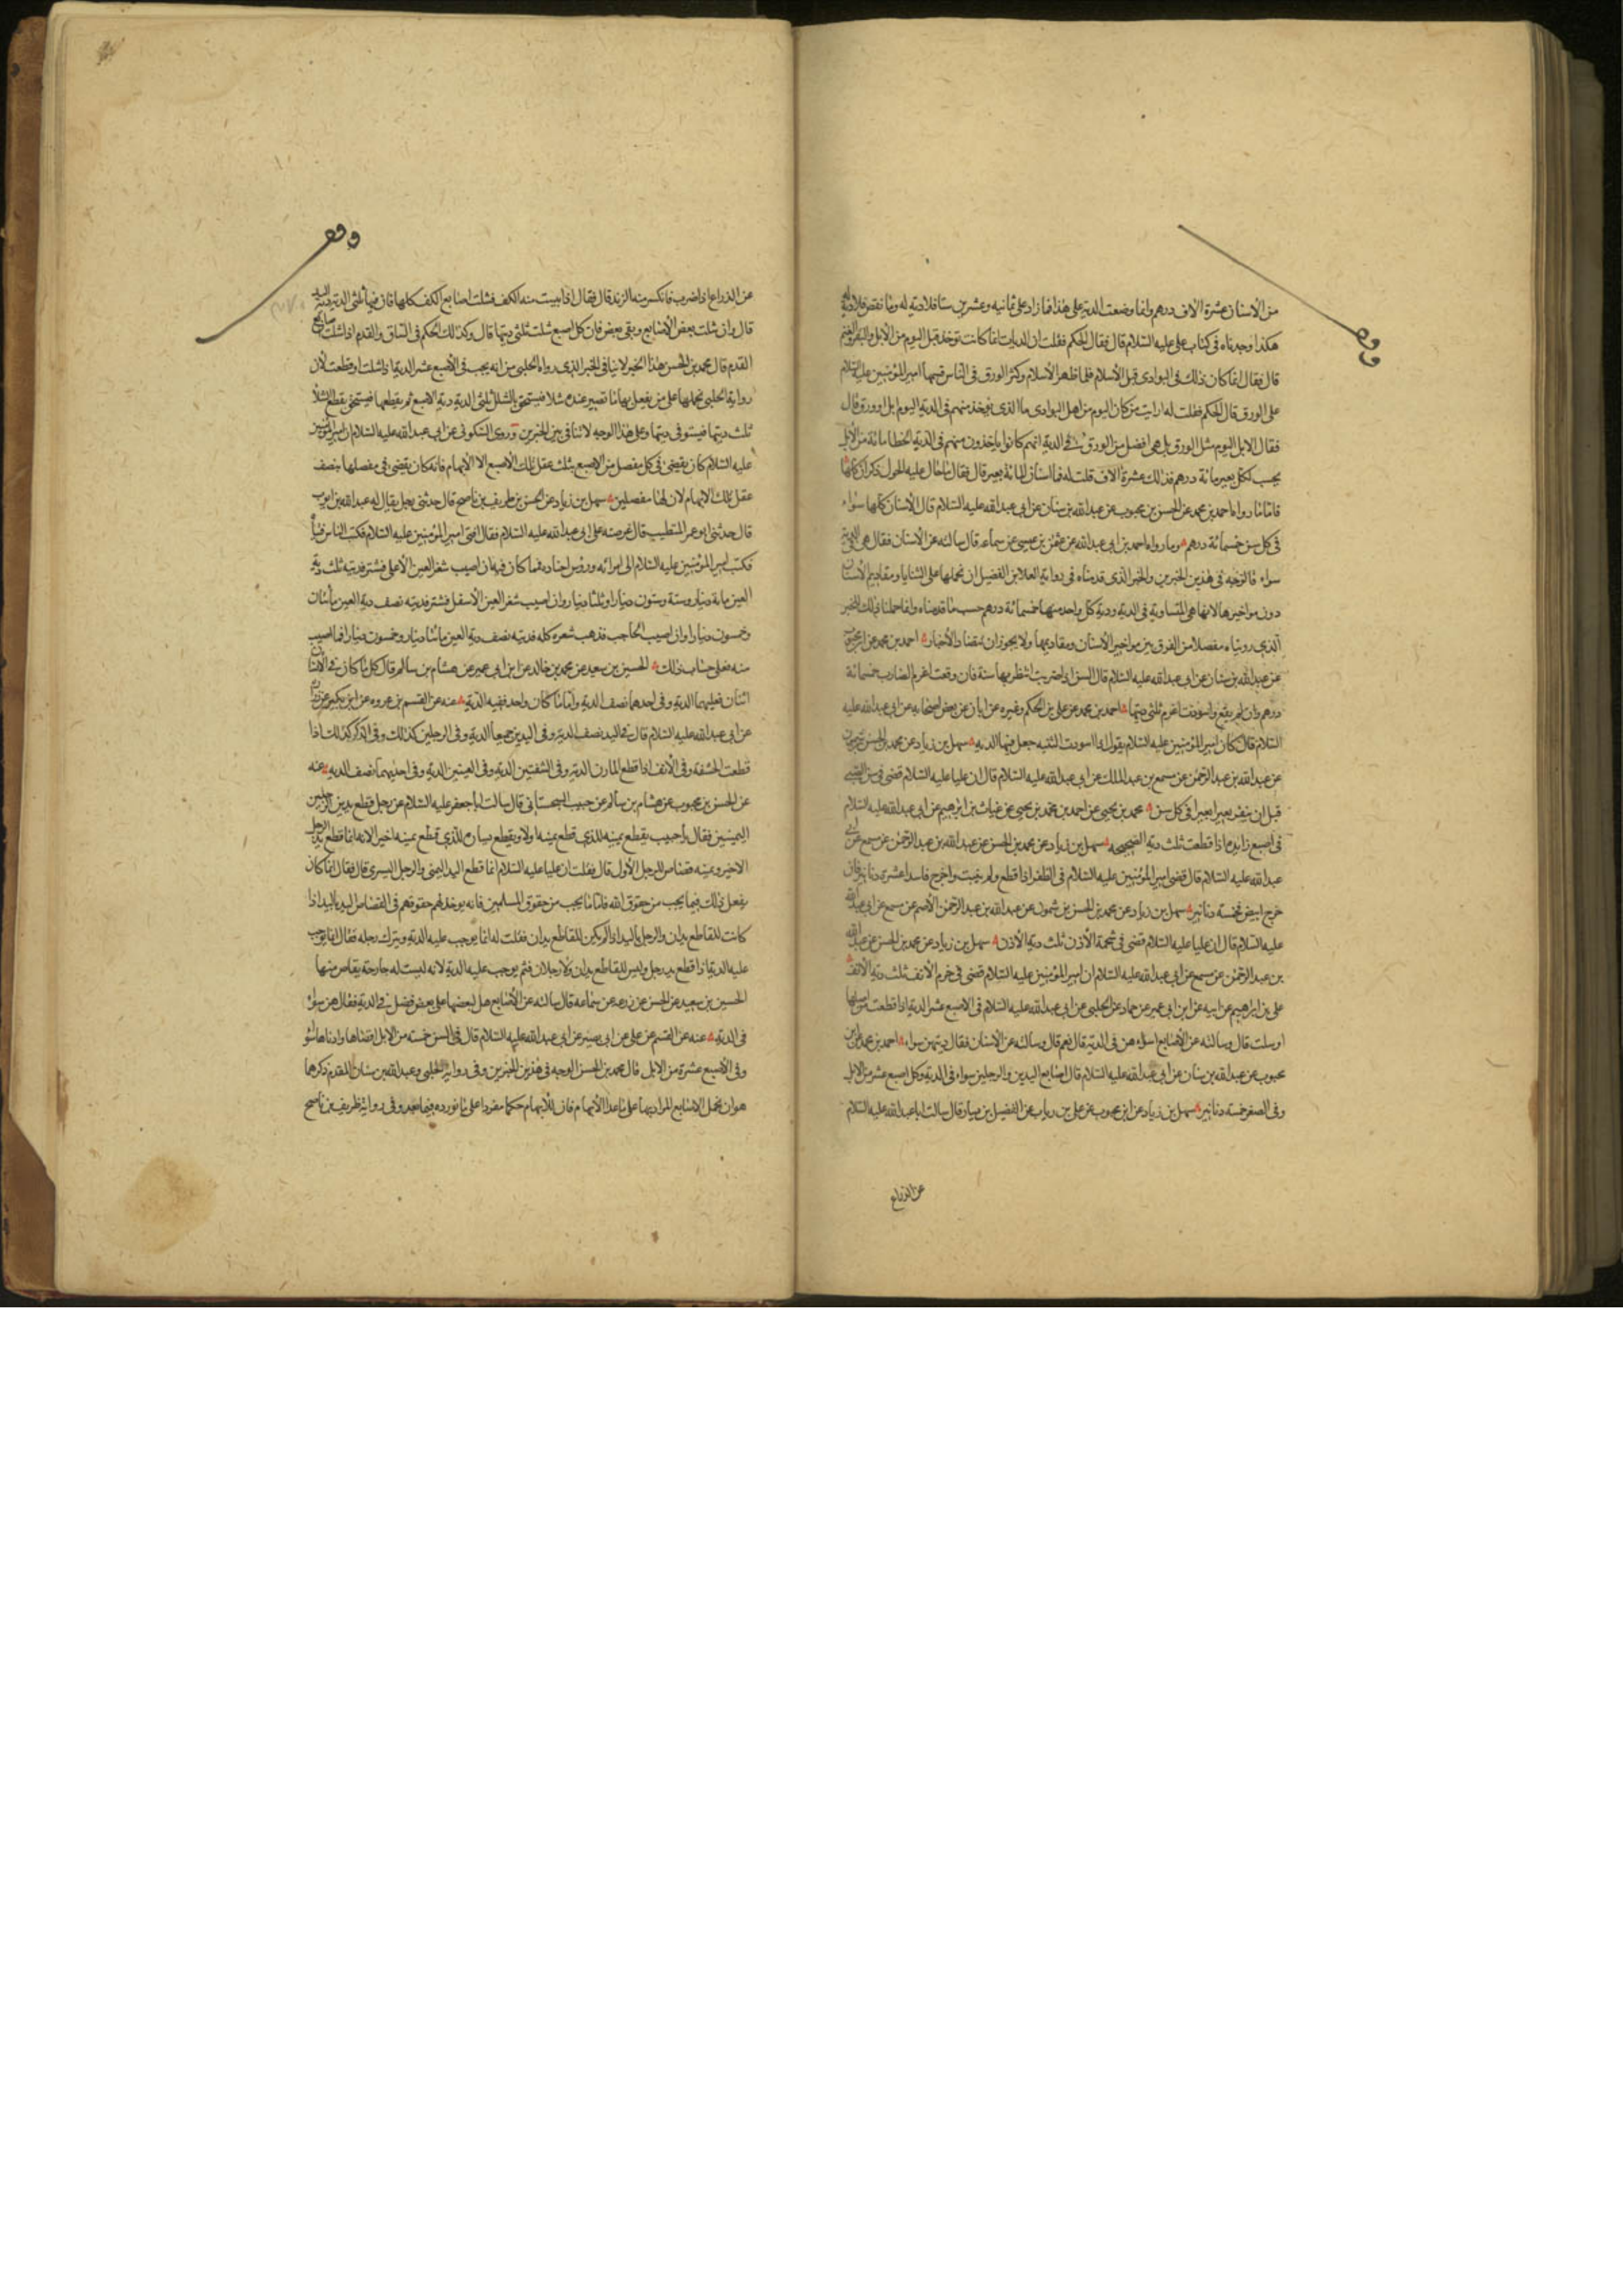 وقف
من الاسنان عشرة الاف درهم وانما وضعت الدية على هذا فما زاد على ثمانيه وعشرين سنا فلا دية له وما نقص فلا دية له
هكذا وجدناه في كتاب علي عليه السلام قال فقال الحكم فقلت ان الديات انما كانت توخذ قبل اليوم من الابل والبقر والغنم
قال فقال انما كان ذلك في البوادى قبل الاسلام فلما ظهر الاسلام وكثر الورق في الناس قسمها امير المؤمنين عليه السلام
على الورق قال الحكم فقلت له ارايت من كان اليوم من اهل البوادى ما الذى يوخذ منهم في الدية اليوم ابل او ورق قال
فقال الابل اليوم مثل الورق بل هي افضل من الورق في الدية انهم كانوا ياخذون منهم في الدية الخطا مائة من الابل
يحسب لكل بعير مائة درهم فذلك عشرة الاف قلت له فما اسنان المائة بعير قال فقال ما حال عليه الحول ذكران كلها
فاما ما رواه احمد بن محمد عن الحسن بن محبوب عن عبد الله بن سنان عن ابي عبد الله عليه السلام قال الاسنان كلها سواء
في كل سن خمسمائة درهم وما رواه احمد بن ابي عبد الله عن عثمن بن عيسى عن سماعه قال سالته عن الاسنان فقال هي في الدية
سواء فالوجه في هذين الخبرين والخبر الذى قدمناه في رواية العلا بن الفضيل ان نحملها على الثنايا ومقاديم الاسنان
دون مواخيرها لانها هي المتساوية في الدية ودية كل واحد منها خمسمائة درهم حسب ما قدمناه وانما حملنا ذلك للخبر
الذي رويناه مفصلا من الفرق بين مواخير الاسنان ومقاديمها ولا يجوز ان يتضاد الاخبار احمد بن محمد عن ابن محبوب
عن عبد الله بن سنان عن ابي عبد الله عليه السلام قال السن اذا ضربت انتظر بها سنة فان وقعت اغرم الضارب خمسمائة
درهم وان لم يقع واسودت اغرم ثلثي ديتها احمد بن محمد عن علي بن الحكم وغيره عن ابان عن بعض اصحابه عن ابي عبد الله عليه
السلام قال كان امير المؤمنين عليه السلام يقول اذا اسودت الثنيه جعل فيها الديه سهل بن زياد عن محمد بن الحسن بن شمون
عن عبد الله بن عبد الرحمن عن مسمع بن عبد الملك عن ابي عبد الله عليه السلام قال ان عليا عليه السلام قضى في سن الصبي
قبل ان يثغر بعيرا بعيرا في كل سن محمد بن يحيى عن احمد بن محمد بن يحيى عن غياث بن ابرهيم عن ابي عبد الله عليه السلام
في اصبع زايده اذا قطعت ثلث دية الصحيحه سهل بن زياد عن محمد بن الحسن عن عبد الله بن عبد الرحمن عن مسمع عن ابي
عبد الله عليه السلام قال قضى امير المؤمنين عليه السلام في الظفر اذا قطع ولم ينبت واخرج فاسدا عشرة دنانير فان
خرج ابيض فخمسته دنانير سهل بن زياد عن محمد بن الحسن بن شمون عن عبد الله بن عبد الرحمن الاصم عن مسمع عن ابي عبد الله
عليه السلام قال ان عليا عليه السلام قضى في شحمة الاذن ثلث دية الاذن سهل بن زياد عن محمد بن الحسن عن عبد الله
بن عبد الرحمن عن مسمع عن ابي عبد الله عليه السلام ان امير المؤمنين عليه السلام قضى في خرم الانف ثلث دية الانف
علي بن ابرهيم عن ابيه عن ابن ابي عمير عن حماد عن الحلبي عن ابي عبد الله عليه السلام في الاصبع عشر الدية اذا قطعت من اصلها
او شلت قال وسالته عن الاصابع اسواء هن في الدية قال نعم قال وسالته عن الاسنان فقال ديتهن سواء احمد بن محمد عن ابن
محبوب عن عبد الله بن سنان عن ابي عبد الله عليه السلام قال اصابع اليدين والرجلين سواء في الدية وكل اصبع عشر من الابل
وفي الظفر خمسته دنانير سهل بن زياد عن ابن محبوب عن علي بن رياب عن الفضيل بن يسار قال سالت ابا عبد الله عليه السلام
عن الذراع
وقف
عن الذراع اذا ضرب فانكسر منه الزند قال فقال اذا يبست منه الكف فشلت اصابع الكف كلها فان فيها ثلثي الدية دية اليد
قال وان شلت بعض الاصابع وبقى بعض فان كل اصبع شلت ثلثي ديتها قال وكذلك الحكم في الساق والقدم اذا شلت اصابع
القدم قال محمد بن الحسن هذا الخبر لا ينافي الخبر الذى رواه الحلبي من انه يجب في الاصبع عشر الدية اذا شلت او قطعت لان
رواية الحلبي نحملها على من يفعل بها ما تصير عنده شلا فيستحق بالشلل ثلثي الدية دية الاصبع ثم يقطعها فيستحق بقطع الشلا
ثلث ديتها فيستوفى ديتها وعلى هذا الوجه لا تنافي بين الخبرين وروى السكونى عن ابي عبد الله عليه السلام ان امير المؤمنين
عليه السلام كان يقضى في كل مفصل من الاصبع بثلث عقل تلك الاصبع الا الابهام فانه كان يقضى في مفصلها بنصف
عقل تلك الابهام لان لها مفصلين سهل بن زياد عن الحسن بن ظريف بن ناصح قال حدثني رجل يقال له عبد الله بن ايوب
قال حدثني ابو عمر المتطبب قال عرضته على ابي عبد الله عليه السلام فقال افتى امير المؤمنين عليه السلام فكتب الناس فتياه
فكتب امير المؤمنين عليه السلام الى امرائه ورؤس اجناده فمما كان فيه ان اصيب شفر العين الاعلى فشتر فديته ثلث دية
العين مايه دينار وستة وستون دينارا وثلثا دينار وان اصيب شفر العين الاسفل فشتر فديته نصف دية العين مائتان
وخمسون دينارا وان اصيب الحاجب فذهب شعره كله فديته نصف دية العين مائتا دينار وخمسون دينارا فما اصيب
منه فعلى حساب ذلك الحسين بن سعيد عن محمد بن خالد عن ابن ابي عمير عن هشام بن سالم قال كل ما كان في الانسان
اثنان ففيهما الدية وفي احدهما نصف الدية واما ما كان واحد ففيه الدية عنه عن القسم بن عروه عن ابن بكير عن زرارة
عن ابي عبد الله عليه السلام قال في اليد نصف الدية وفي اليدين جميعا الدية وفي الرجلين كذلك وفي الذكر كذلك اذا
قطعت الحشفة وفي الانف اذا قطع المارن الدية وفي الشفتين الدية وفي العينين الدية وفي احديهما نصف الديه عنه
عن الحسن بن محبوب عن هشام بن سالم عن حبيب السجستاني قال سالت ابا جعفر عليه السلام عن رجل قطع يدين لرجلين
اليمينين فقال يا حبيب يقطع يمينه للذى قطع يمينه اولا ويقطع يساره للذى قطع يمينه اخيرا لانه انما قطع يد الرجل
الاخير ويمينه قصاص للرجل الاول قال فقلت ان عليا عليه السلام انما قطع اليد اليمنى والرجل اليسرى قال فقال انما كان
يفعل ذلك فيما يجب من حقوق الله فاما ما يجب من حقوق المسلمين فانه يوخذ لهم حقوقهم في القصاص اليد باليد اذا
كانت للقاطع يدان والرجل باليد اذا لم يكن للقاطع يدان فقلت له انما يوجب عليه الدية ويترك رجله فقال انما يوجب
عليه الدية اذا قطع يد رجل وليس للقاطع يدان ولا رجلان فثم يوجب عليه الدية لانه ليست له جارحة يقاص منها
الحسين بن سعيد عن الحسن عن زرعه عن سماعه قال سالته عن الاصابع هل لبعضها على بعض فضل في الدية فقال هن سواء
في الدية عنه عن القسم عن علي عن ابي بصير عن ابي عبد الله عليه السلام قال في السن خمسه من الابل اقصاها وادناها سواء
وفي الاصبع عشرة من الابل قال محمد بن الحسن الوجه في هذين الخبرين وفي رواية الحلبي وعبد الله بن سنان المقدم ذكرها
هو ان نحمل الاصابع المراد بها على ما عدا الابهام فان للابهام حكما مفردا على ما نورده فيما بعد وفي رواية ظريف بن ناصح